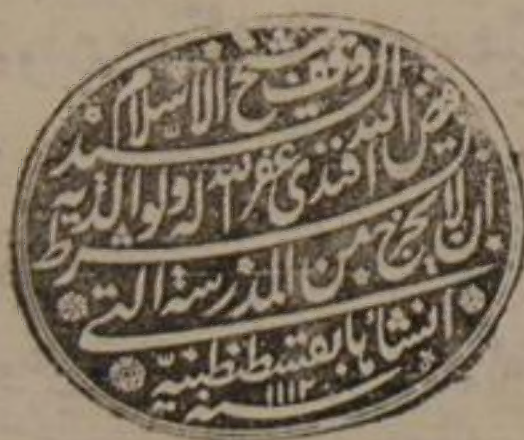 وقف شيخ الاسلام
السيد فيض الله
افندى غفر الله له ولوالديه
بشرط
ان لا يخرج من المدرسة التى
انشأها بقسطنطنيّة
سنه ١١١٢